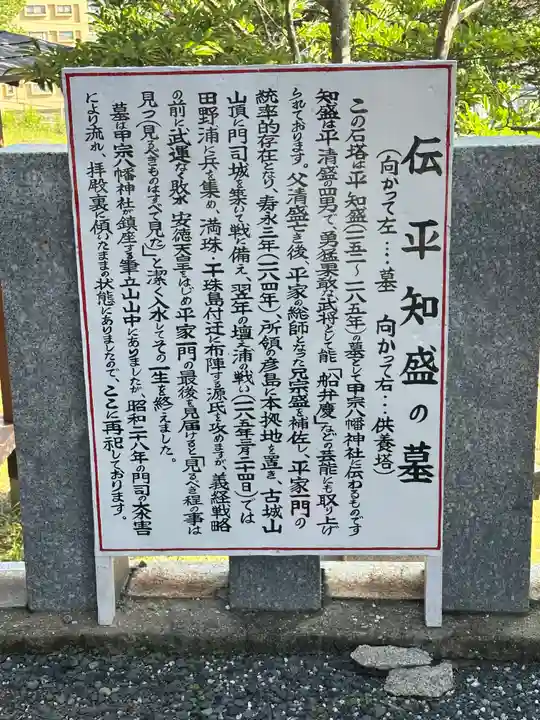 伝平知盛の墓
(向かって左‥‥墓　向かって右‥‥供養塔)
この石塔は平知盛(一一五二〜一一八五年)の墓として甲宗八幡神社に伝わるものです
知盛は平清盛の四男で、勇猛果敢な武将として能「船弁慶」などの芸能にも取り上げ
られております。父清盛亡き後、平家の総帥となった兄宗盛を補佐し、平家一門の
統率的存在となり、寿永三年(一一八四年)、所領の彦島に本拠地を置き、古城山
山頂に門司城を築いて戦に備え、翌年の壇之浦の戦い(一一八五年三月二十四日)では
田野浦に兵を集め、満珠・干珠島付近に布陣する源氏を攻めますが、義経戦略
の前に武運なく敗北 安徳天皇をはじめ平家一門の最後を見届けると「見るべき程の事は
見つ(見るべきものはすべて見た)」と潔く入水してその一生を終えました。
墓は甲宗八幡神社が鎮座する筆立山山中にありましたが、昭和二十八年の門司の大水害
により流れ、拝殿裏に傾いたままの状態にありましたので、ここに再祀しております。